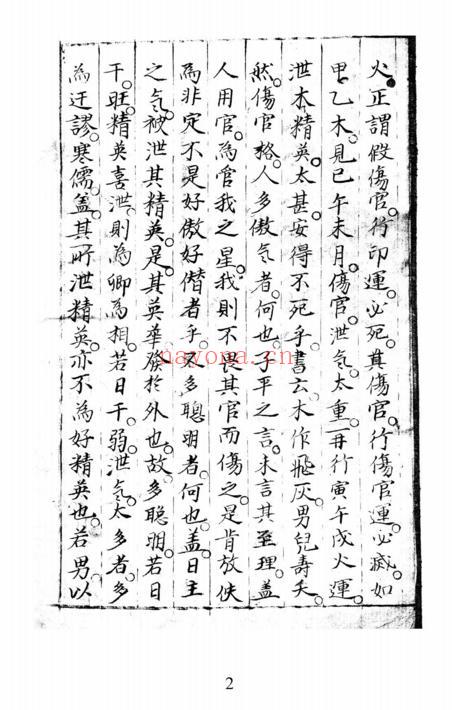 火。正謂假傷官。行印運。必死。真傷官。行傷官運。必滅。如
甲乙木。見巳午未月。傷官。泄氣太重。再行寅午戌火運。
泄本精英。太甚。安得不死乎。書云。木作飛灰。男兒壽夭。
然傷官格。人多傲氣者。何也。子平之言。未言其至理。盖
人用官。為官我之星。我則不畏其官而傷之。是肯放佚
為非。定不是好傲好僭者乎。又多聰明者。何也。盖日主
之氣。被泄其精英。是其英華發於外也。故多聰明。若日
干。旺。精英喜泄。則為卿為相。若日干。弱。泄氣太多者。多
為迂謬。寒儒。盖其所泄精英。亦不為好精英也。若男以
nayona.cn
2